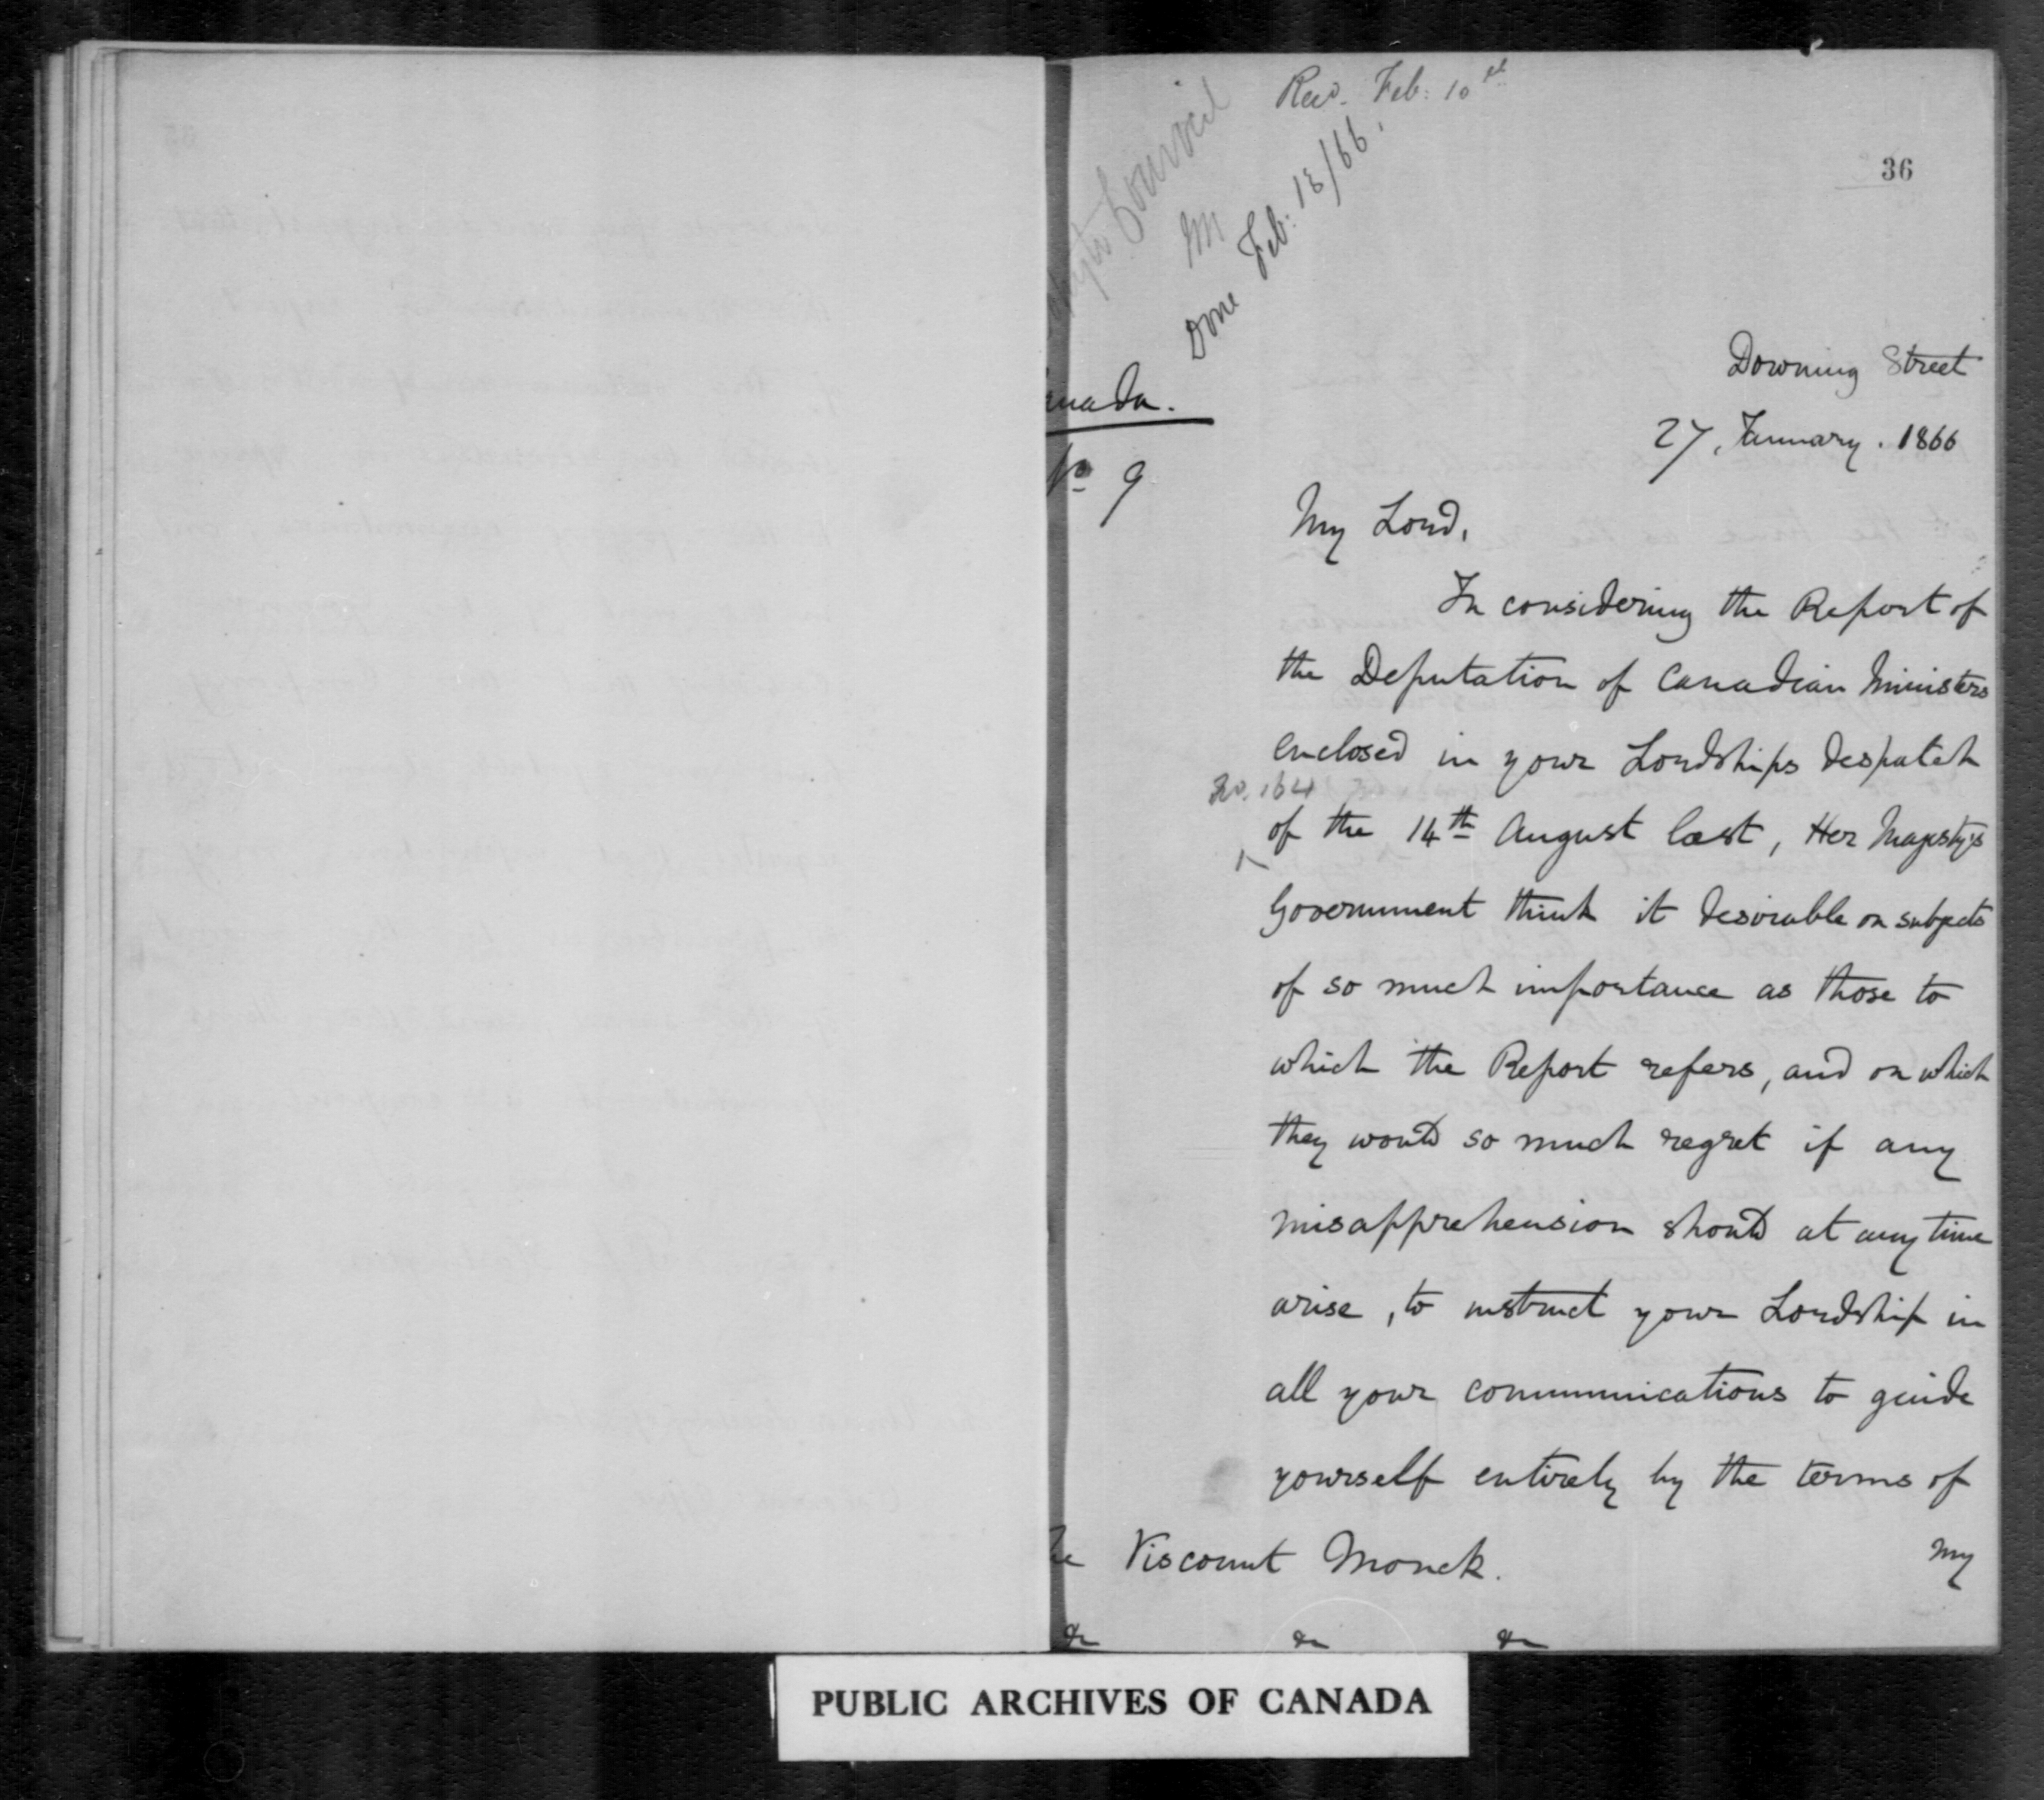 Recd. Feb: 10th
36
Council
Done Feb: 13/66.
Downing Street
anada.
27, January. 1866
No 9
My Lord,
In considering the Report of
the Deputation of Canadian Ministers
enclosed in your Lordships despatch
No. 164
of the 14th August last, Her Majesty's
Government think it desirable on subjects
of so much importance as those to
which the Report refers, and on which
they would so much regret if any
misapprehension should at any time
arise, to instruct your Lordship in
all your communications to guide
yourself entirely by the terms of
my
Viscount Monck.
&c &c &c
PUBLIC ARCHIVES OF CANADA